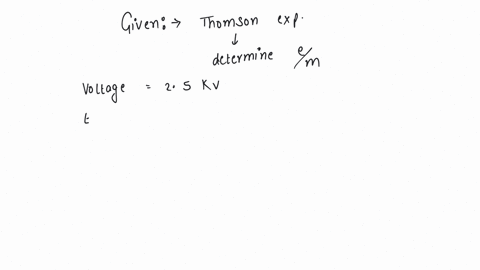 Given:→ Thomson exp.
↓
determine e/m
Voltage = 2.5 KV
t